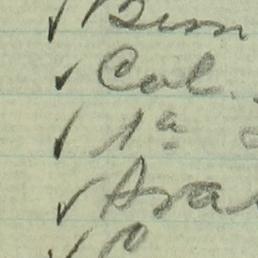 ✓ Bim
✓ Cal.
✓ 1ª
✓ Ara